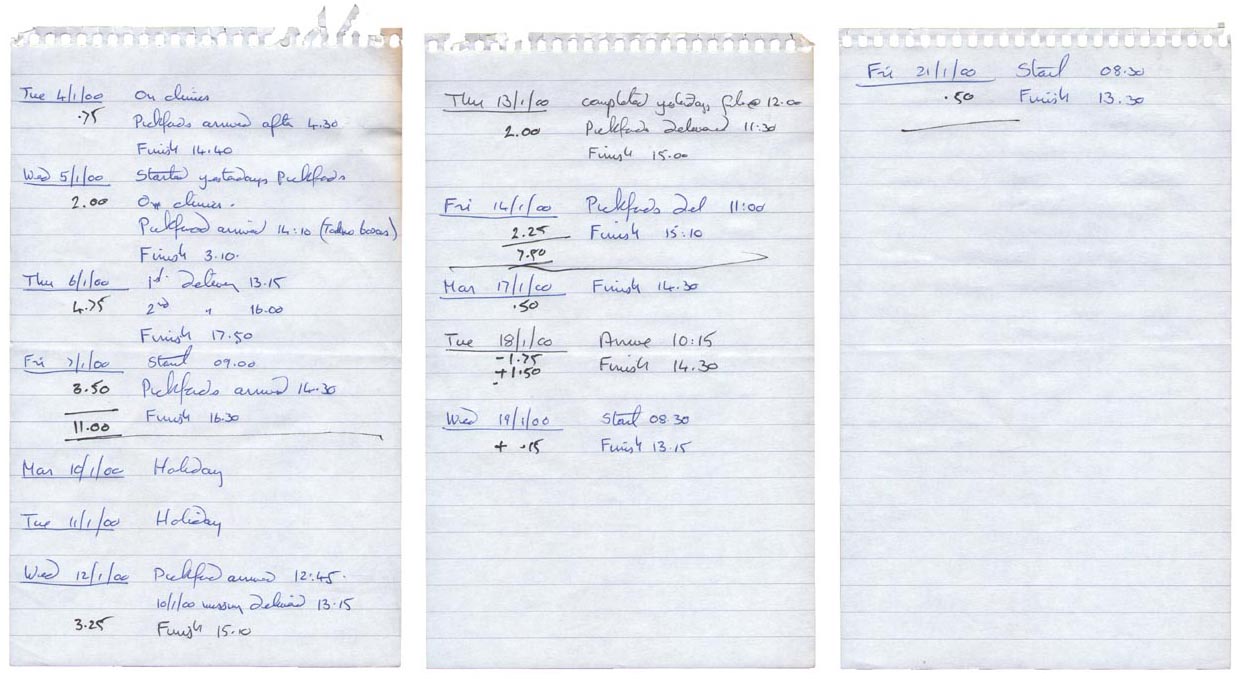 Tue 4/1/00 On clinics
.75 Pickfords arrived after 4.30
Finish 14.40
Wed 5/1/00 Started yesterdays Pickfords
2.00 On clinics.
Pickford arrived 14:10 (Taking boxes)
Finish 3.10.
Thu 6/1/00 1st. Delivery 13.15
4.75 2nd " 16.00
Finish 17.50
Fri 7/1/00 Start 09.00
3.50 Pickfords arrived 14.30
Finish 16.30
11.00
Mon 10/1/00 Holiday
Tue 11/1/00 Holiday
Wed 12/1/00 Pickford arrived 12:45.
10/1/00 missing delivered 13.15
3.25 Finish 15.10
Thu 13/1/00 completed yesterdays @ 12.00
2.00 Pickfords delivered 11:30
Finish 15.00
Fri 14/1/00 Pickfords del 11:00
2.25 Finish 15:10
7.50
Mon 17/1/00 Finish 14.30
.50
Tue 18/1/00 Arrive 10:15
-1.75 Finish 14.30
+1.50
Wed 19/1/00 Start 08.30
+ .15 Finish 13.15
Fri 21/1/00 Start 08.30
.50 Finish 13.30